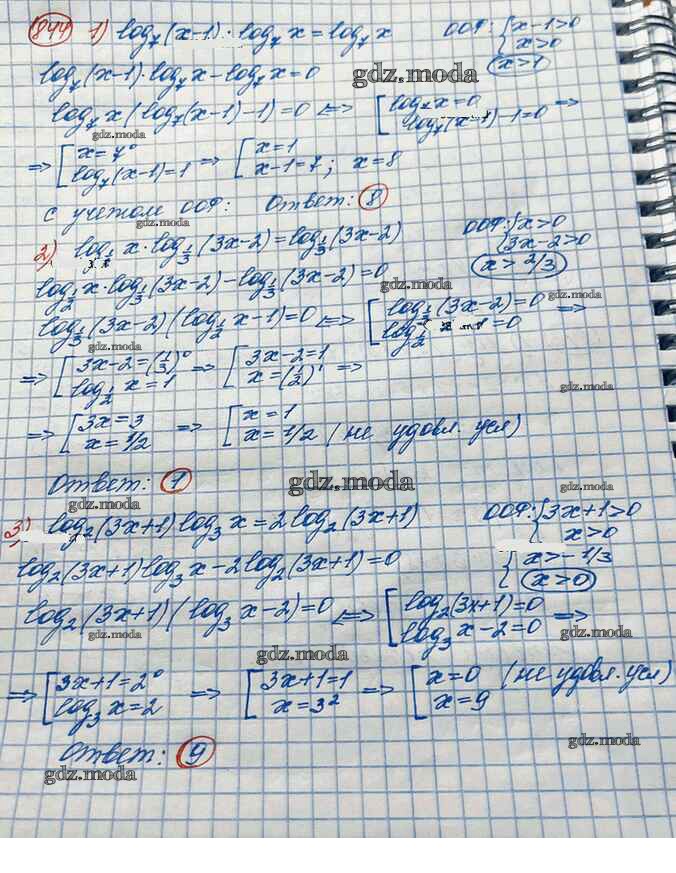 844 1) log₇(x-1)·log₇x=log₇x ООФ: { x-1>0
x>0
x>1
log₇(x-1)·log₇x-log₇x=0
gdz.moda
log₇x(log₇(x-1)-1)=0 <=> [ log₇x=0
log₇(x-1)-1=0 =>
gdz.moda
=> [ x=7⁰
log₇(x-1)=1 => [ x=1
x-1=7; x=8
gdz.moda
с учетом ООФ: Ответ: 8
gdz.moda
2) x·log_{1/3}(3x-2)=log_{1/3}(3x-2) ООФ: { x>0
3x-2>0
x>2/3
gdz.moda
log_{1/2}x·log_{1/3}(3x-2)-log_{1/3}(3x-2)=0
gdz.moda
log_{1/3}(3x-2)(log_{1/2}x-1)=0 <=> [ log_{1/3}(3x-2)=0
log_{1/2} =0 =>
gdz.moda
=> [ 3x-2=(1/3)⁰
log_{1/2}x=1 => [ 3x-2=1
x=(1/2)¹ =>
gdz.moda
=> [ 3x=3
x=1/2 => [ x=1
x=1/2 (не удовл. усл)
gdz.moda
Ответ: 1
gdz.moda
gdz.moda
gdz.moda
3) log₂(3x+1)log₃x=2log₂(3x+1) ООФ: { 3x+1>0
x>0
{ x>-1/3
x>0
log₂(3x+1)log₃x-2log₂(3x+1)=0
log₂(3x+1)(log₃x-2)=0 <=> [ log₂(3x+1)=0
log₃x-2=0 =>
gdz.moda
gdz.moda
=> [ 3x+1=2⁰
log₃x=2 => [ 3x+1=1
x=3² => [ x=0 (не удовл. усл)
x=9
gdz.moda
gdz.moda
Ответ: 9
gdz.moda
gdz.moda